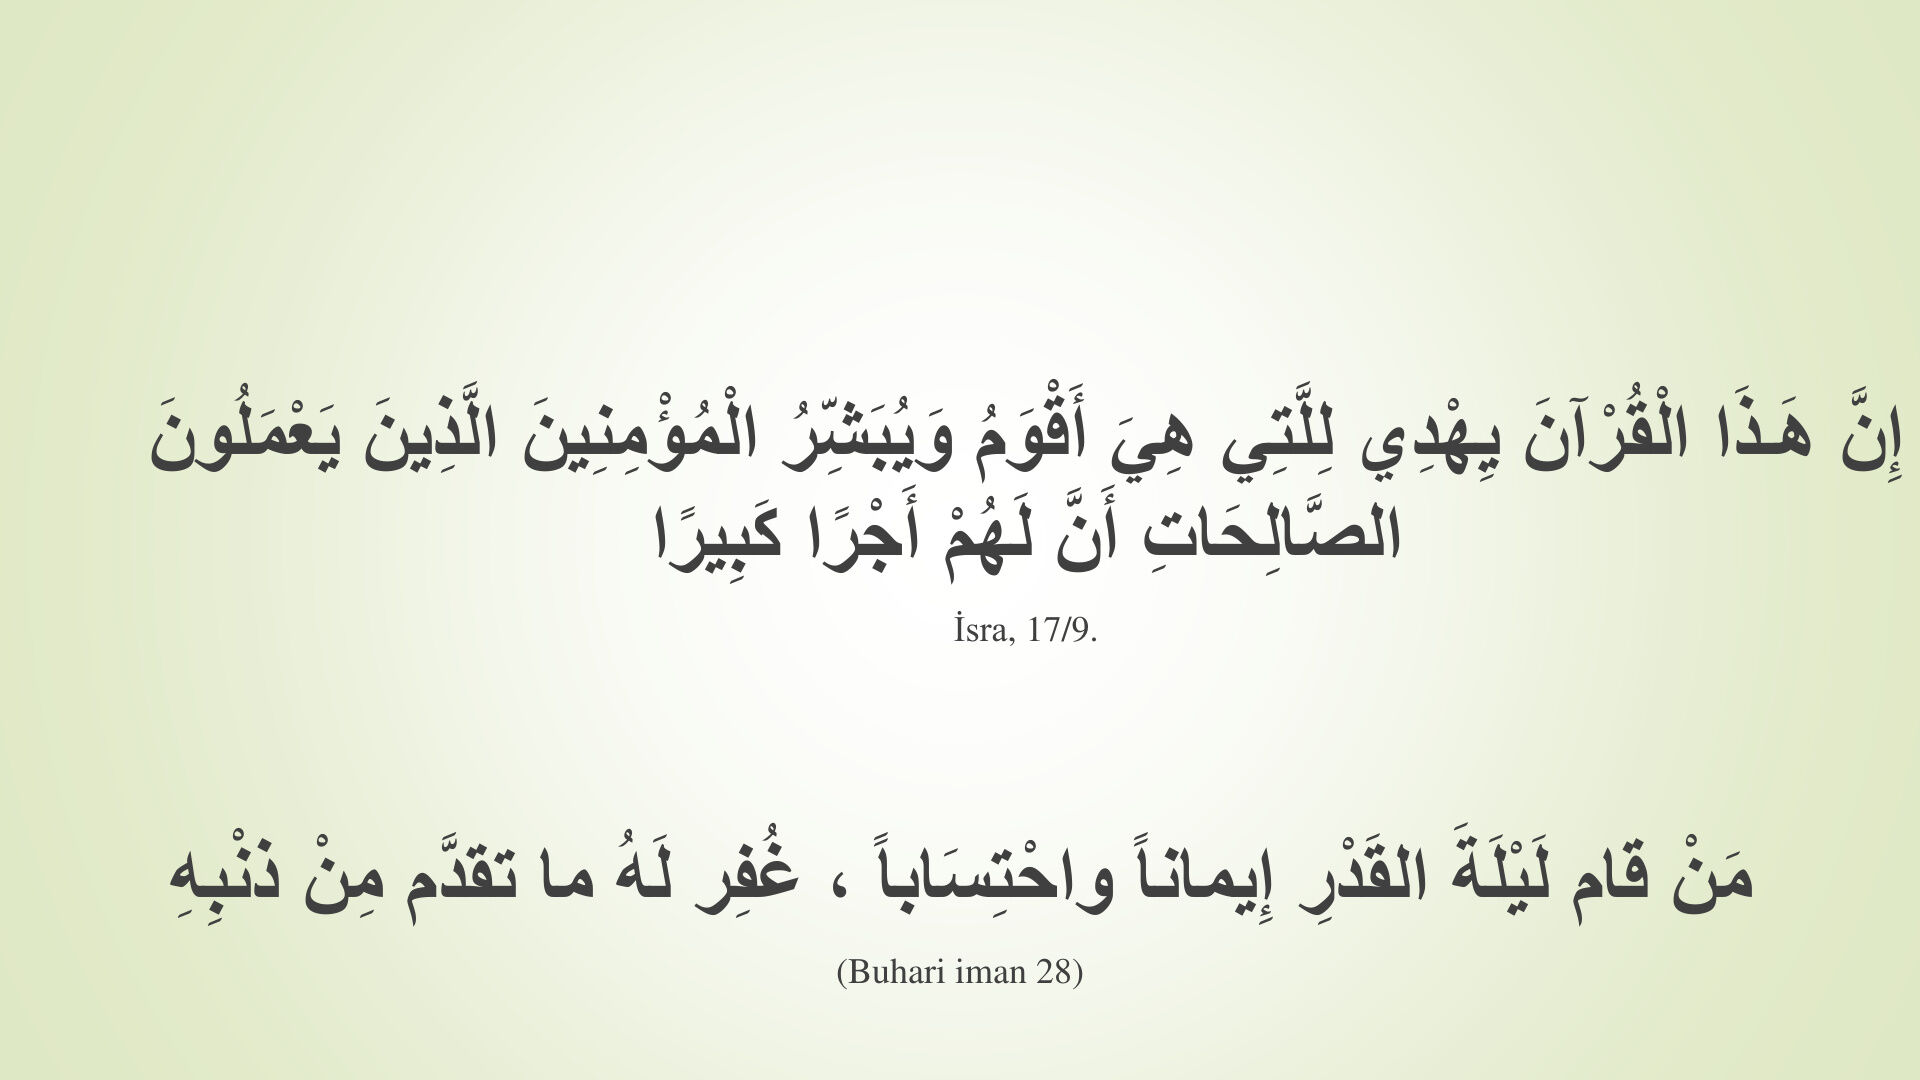 إِنَّ هَـذَا الْقُرْآنَ يِهْدِي لِلَّتِي هِيَ أَقْوَمُ وَيُبَشِّرُ الْمُؤْمِنِينَ الَّذِينَ يَعْمَلُونَ
الصَّالِحَاتِ أَنَّ لَهُمْ أَجْرًا كَبِيرًا
İsra, 17/9.
مَنْ قام لَيْلَةَ القَدْرِ إِيماناً واحْتِسَاباً ، غُفِر لَهُ ما تقدَّم مِنْ ذنْبِهِ
(Buhari iman 28)